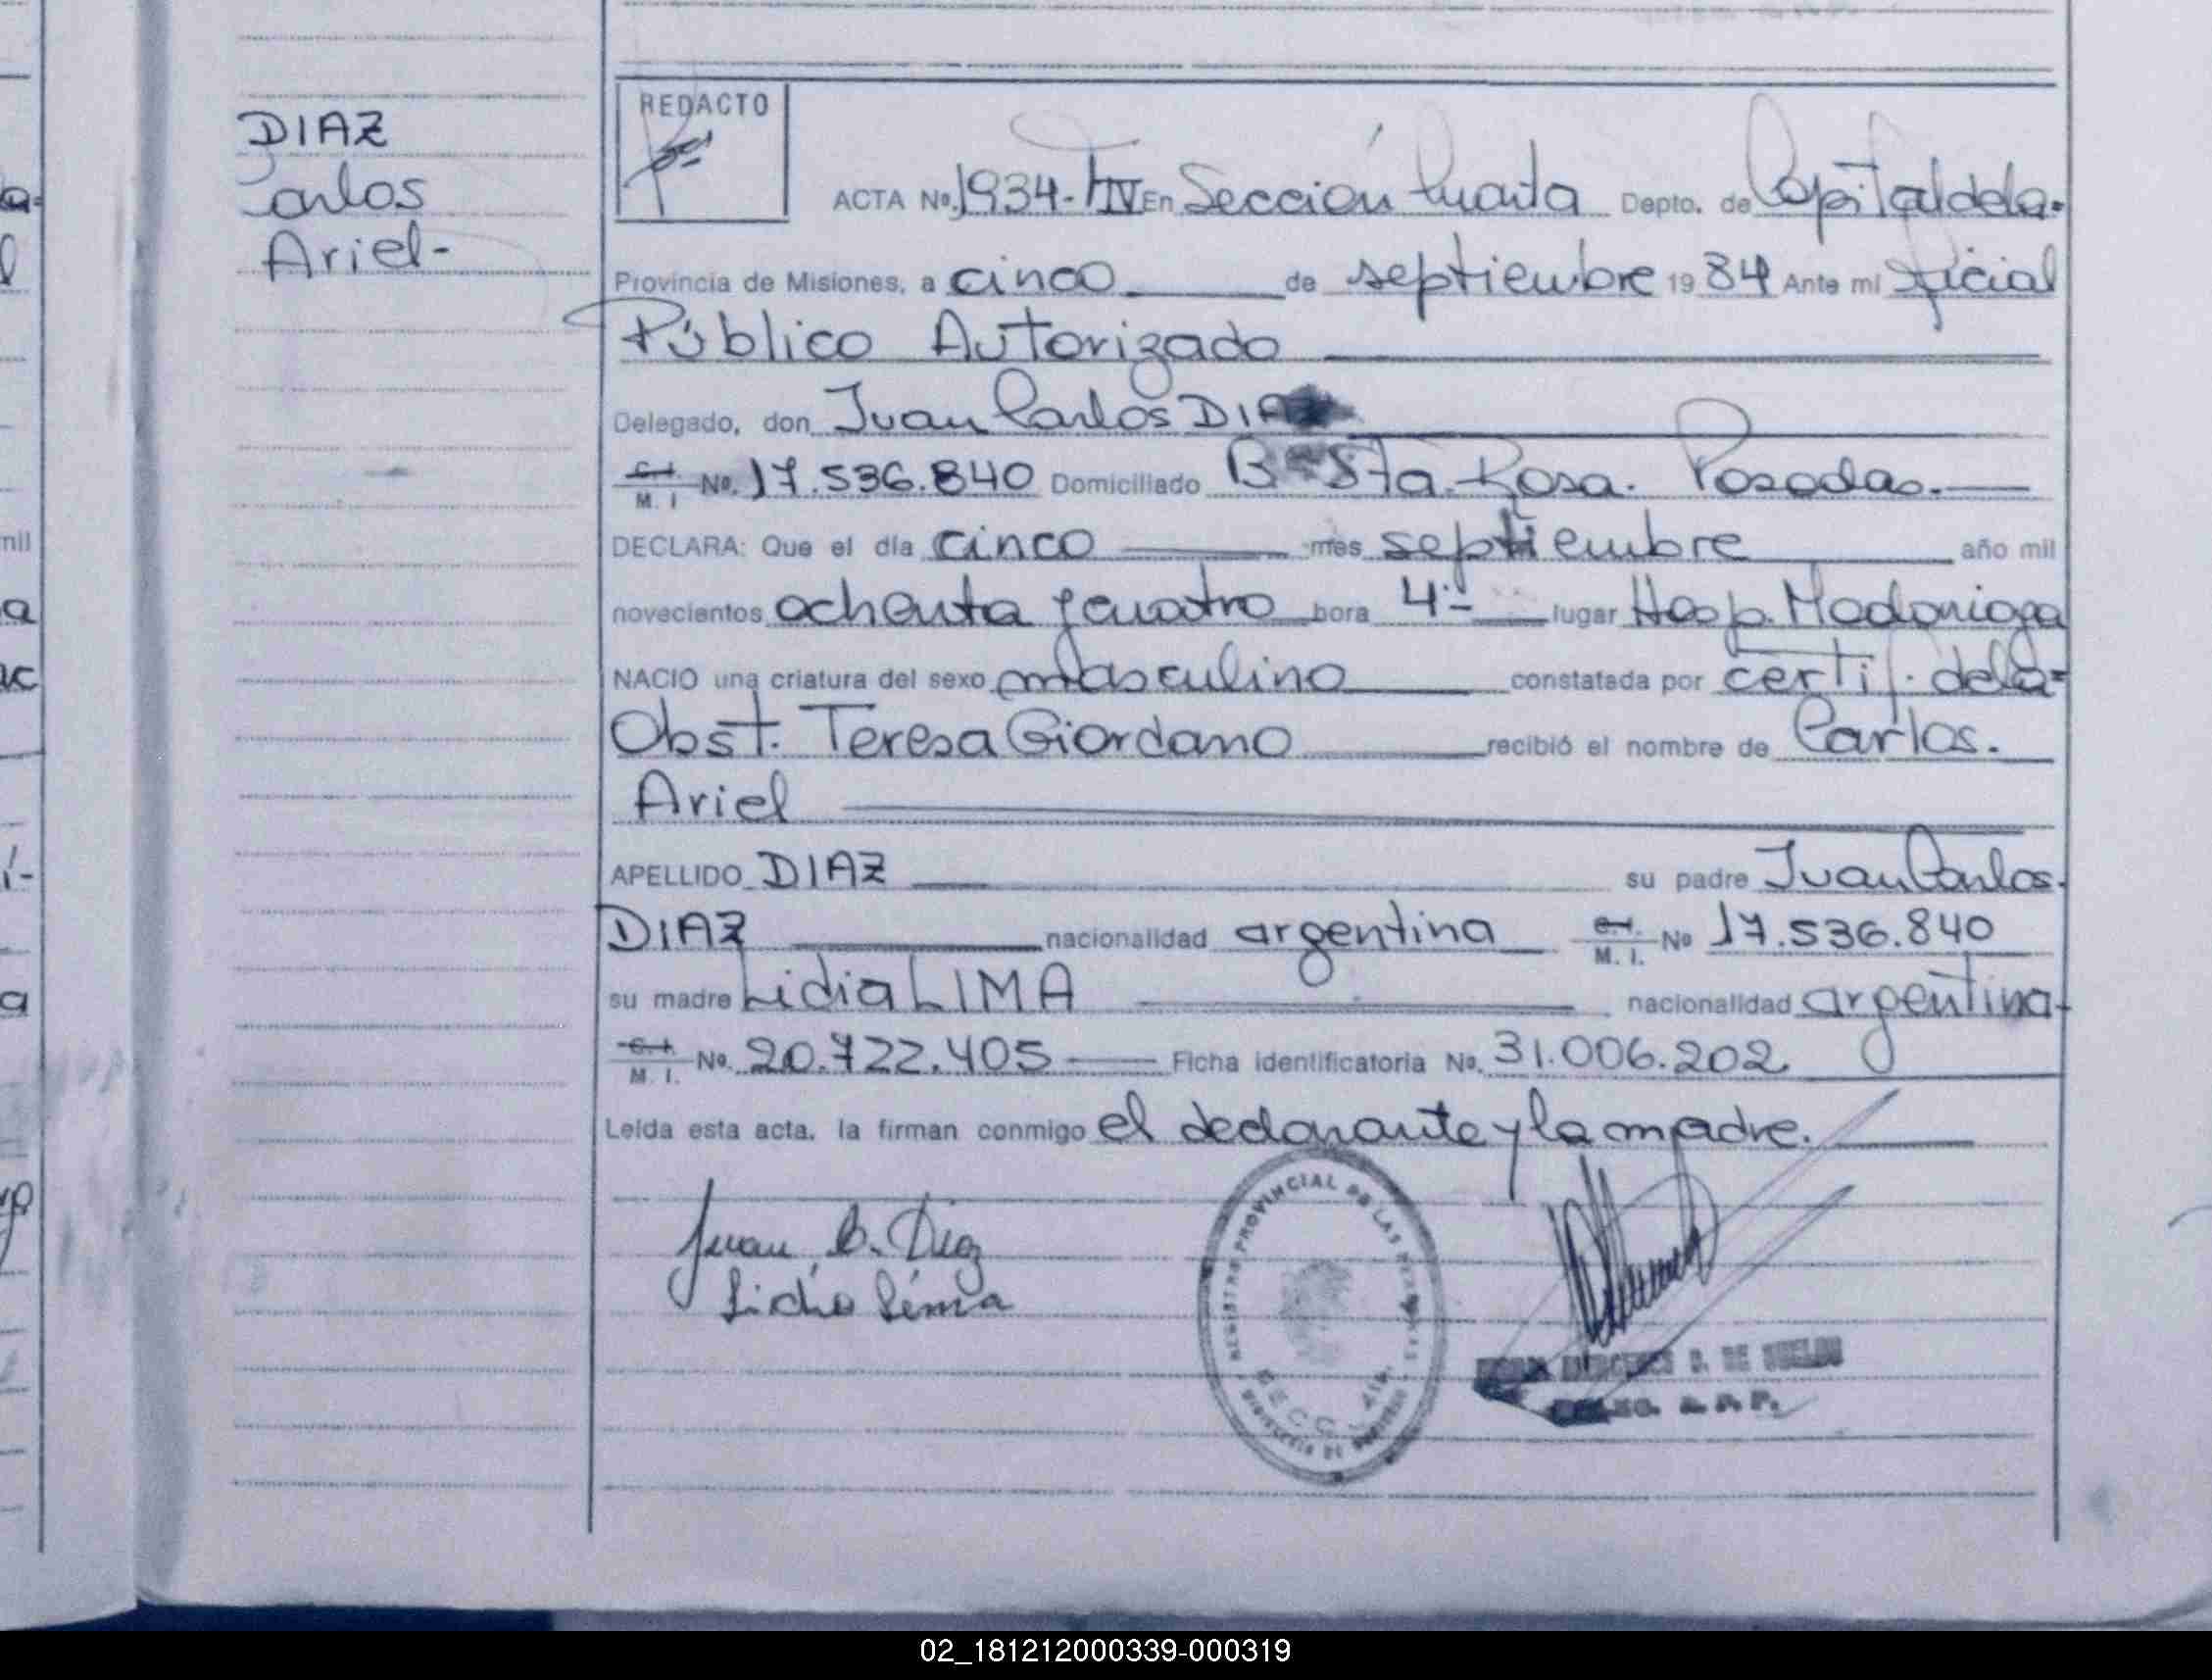 DIAZ
Carlos
Ariel-
REDACTO
ACTA No. 1934-TIV En Sección Cuarta Depto. de Capital de la-
Provincia de Misiones, a cinco de septiembre 1984 Ante mi Oficial
Público Autorizado
Delegado, don Juan Carlos DIAZ
C.I. M. I No. 17.536.840 Domiciliado Bº Sta. Rosa. Posadas.-
DECLARA: Que el día cinco mes septiembre año mil
novecientos ochenta y cuatro hora 4:- lugar Hosp. Madariaga
NACIO una criatura del sexo masculino constatada por certif. de la-
Obst. Teresa Giordano recibió el nombre de Carlos.
Ariel
APELLIDO DIAZ su padre Juan Carlos.
DIAZ nacionalidad argentina C.I. M. I. No 17.536.840
su madre Lidia LIMA nacionalidad argentina-
C.I. M. I. No. 20.722.405 Ficha identificatoria No. 31.006.202
Leída esta acta, la firman conmigo el declarante y la madre.
Juan C. Diaz
Lidia Lima
REGISTRO PROVINCIAL DE LAS PERSONAS
SECC. 4ta.
MINISTERIO DE GOBIERNO
02_181212000339-000319